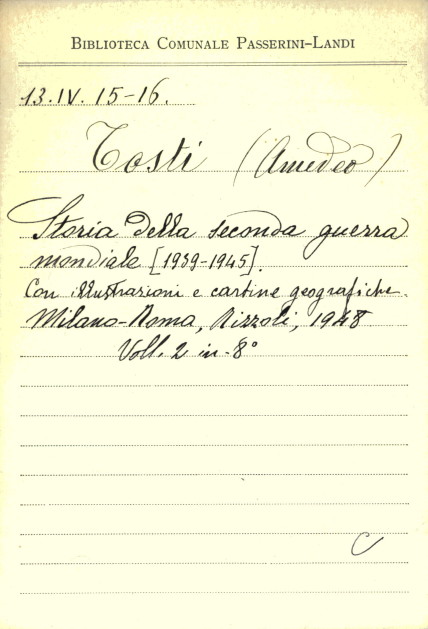 BIBLIOTECA COMUNALE PASSERINI-LANDI
13.IV. 15-16.
Tosti (Amedeo)
Storia della seconda guerra
mondiale [1939-1945].
Con illustrazioni e cartine geografiche.
Milano-Roma, Rizzoli, 1948
Voll. 2 in-8°
C